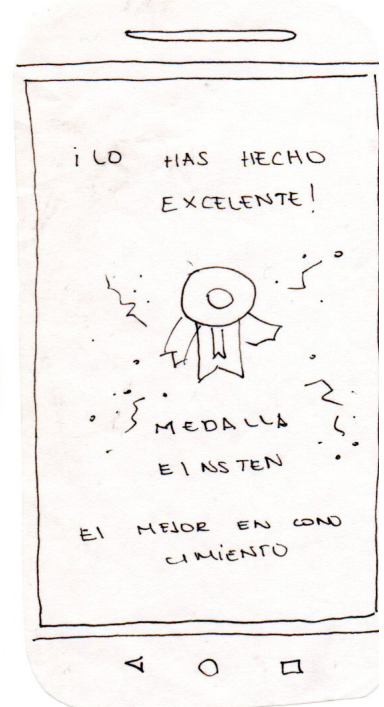 ¡LO HAS HECHO
EXCELENTE!
MEDALLA
EINSTEN
El MEJOR EN CONO
CIMIENTO